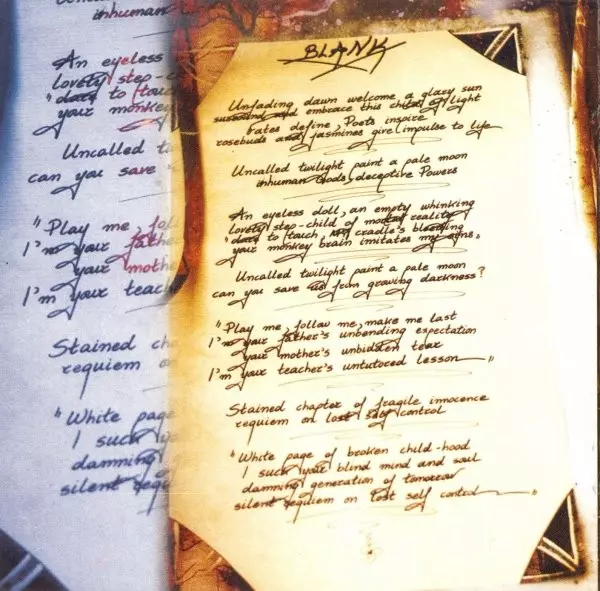 inhuman
An eyeless
lovely step-c
"dare to touc
your monkey
Uncalled t
can you save
"Play me, foll
I'm your father
your moth
I'm your teac
Stained cha
requiem on
"White page
I suck yo
damning
silent requi
BLANK
Unfading dawn welcome a glary sun
surround and embrace this child of light
Fates define, Poets inspire
rosebuds and jasmines give impulse to life
Uncalled twilight paint a pale moon
inhuman Gods, deceptive Powers
An eyeless doll, an empty whinking
lovely step-child of mortal reality
"dare to touch, my cradle's bleeding
your monkey brain imitates my signs"
Uncalled twilight paint a pale moon
can you save us from growing darkness?
"Play me, follow me, make me last
I'm your father's unbending expectation
your mother's unbidden tear
I'm your teacher's untutored lesson"
Stained chapter of fragile innocence
requiem on lost self control
"White page of broken child-hood
I suck your blind mind and soul
damning generation of tomorrow
silent requiem on lost self control"